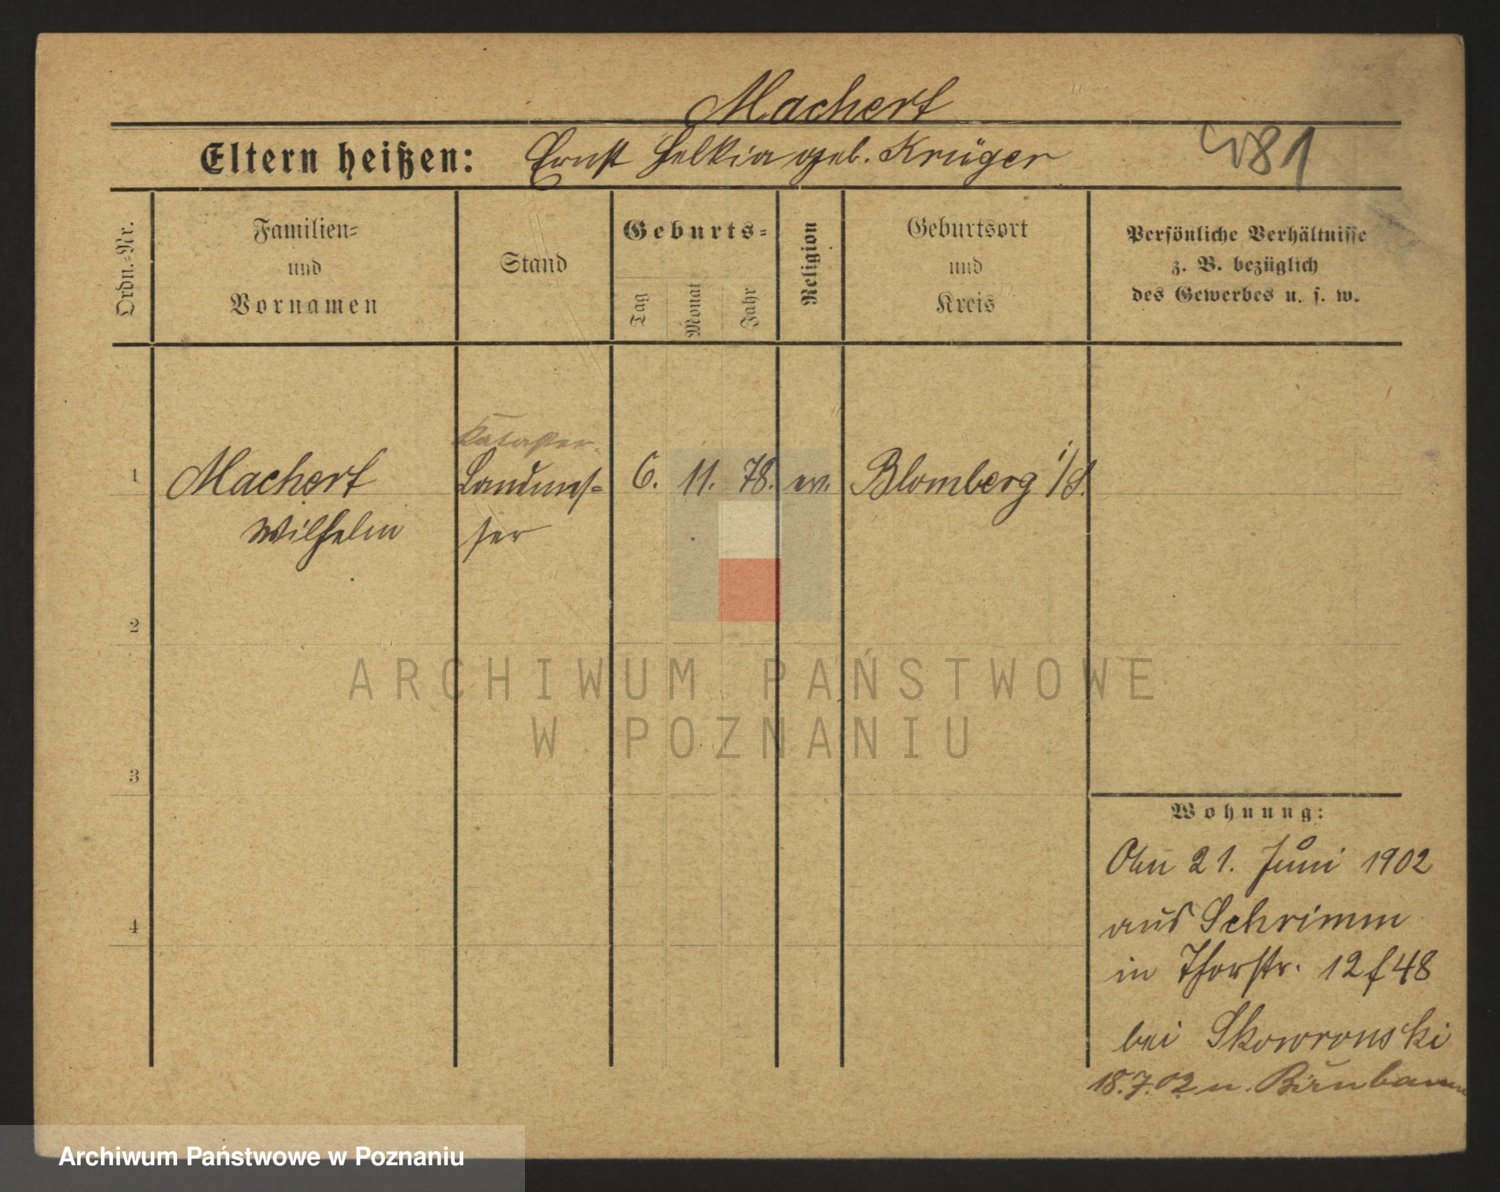 Machert
Eltern heißen: Ernst Helkia geb. Krüger
Ordn.=Nr.
Familien=
und
Vornamen
Stand
Geburts=
Tag
Monat
Jahr
Religion
Geburtsort
und
Kreis
Persönliche Verhältnisse
z. B. bezüglich
des Gewerbes u. s. w.
Kataster
1 Machert Landmes= 6. 11. 78. ev. Blomberg
Wilhelm ser
2
ARCHIWUM PAŃSTWOWE
W POZNANIU
3
Wohnung:
21. Juni 1902
4
aus Schrimm
in Thorstr. 12 f 48
bei Skowronski
18.7.02 n. Birnbaum
Archiwum Państwowe w Poznaniu